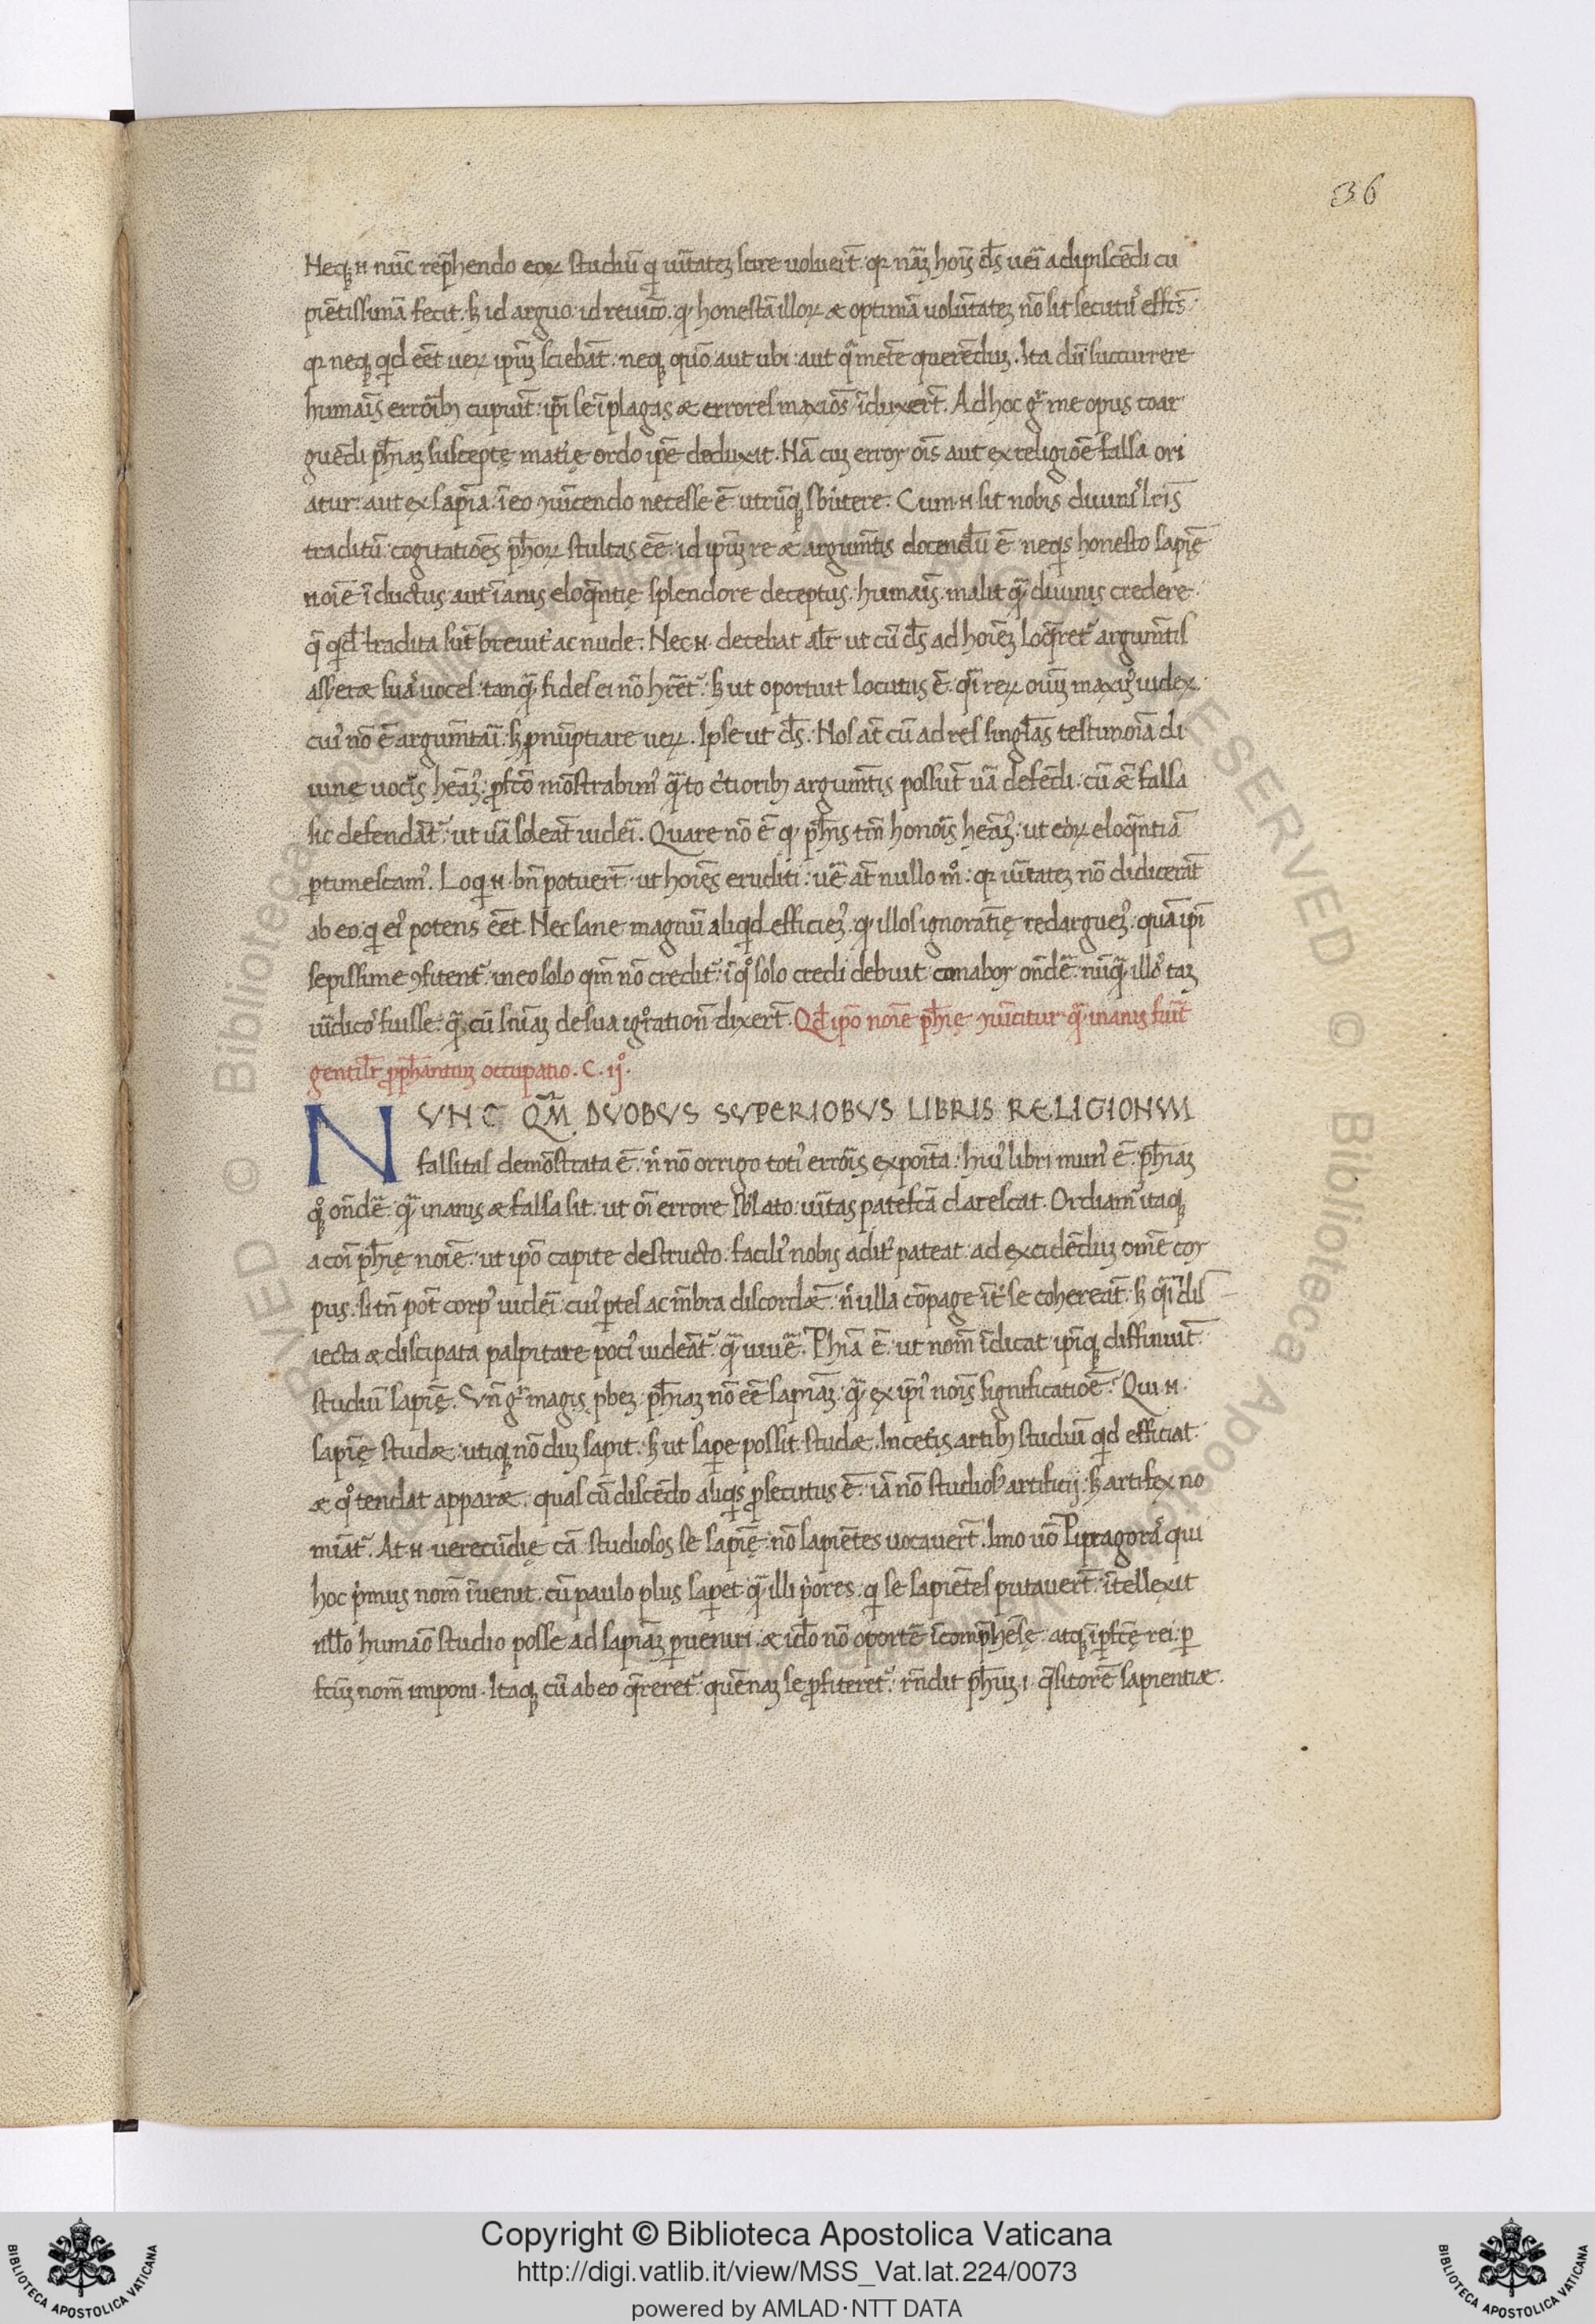 36
Neq; .n. nūc rep̄hendo eoꝝ studiū qi ūitateꝫ scire voluerī̄t. qꝛ nāȝ hoīs d̄s ueī adipiscēdi cu
piētissimā fecit. sꝫ id arguo. id reuīco. qꝙ honestā illoꝝ æ optimā volūtateꝫ nō sit secutꝰ effcs̄.
qꝛ neq; qid eēt ueꝝ ipm̄ sciebāt. neq; quō aut ubi. aut qͣ mēte querēduꝫ. Ita dū succurrere
humaīs errōibꝫ cupiūt. ipī se ī plagas æ errores maxīos īduxert̄. Ad hoc gͦ me opus coar
guēdi ph̄iaꝫ suscepte̜ matīe̜ ordo ip̄e deduxit. Nā cuꝫ error oīs aut ex religiōe falsa ori
atur. aut ex sapīa. ī eo ꝯuīcendo necesse ē utrūq; sb̄utere. Cum .n. sit nobis diuinꝭ lr̄is
traditū. cogitatiōes ph̄oꝝ stultas eē. id ipm̄ re æ argum̄tis docendū ē. neqis honesto sapīe̜
noīe īductus aut īanis eloqn̄tie̜ splendore deceptus. humaīs. malit qͣꝫ diuinis credere.
q̄ qid̄ tradita sūt breuit̄ ac nude. Nec .n. decebat alr̄ ut cū d̄s ad hoīeꝫ loqr̄etᷣ argum̄tis
assereræ suas uoces. tanqͣꝫ fides ei nō hr̄etᷣ. sꝫ ut oportuit locutus ē. qͣi reꝝ oīum maxīꝰ iudex.
cuiꝰ nō ē argum̄tāi. sꝫ ꝓnūptiare ueꝝ. Ipse ut d̄s. Nos at̄ cū ad res singl̄as testimoīa di
uine̜ uocis heāꝰ. ꝓfcō mōstrabimꝰ qͣꝫto c̄tioribꝫ argum̄tis possūt ūa defēdi. cū ǣ falsa
sic defendātᷣ. ut ūa soleāt uideī. Quare nō ē qꝙ ph̄is tm̄ honōis heāꝰ. ut eoꝝ eloqn̄tiā
ꝑtimescamꝰ. Loqi .n. bn̄ potuert̄. ut hoīes eruditi. uē at̄ nullo mͦ. qꝛ ūitateꝫ nō didicerāt
ab eo. qi eiꝰ potens eēt. Nec sane magnū aliqid efficieꝰ. qꝙ illos ignorātie̜ redargueꝰ. quā ipī
sepissime ꝯfitentᷣ. in eo solo qm̄ nō creditᷣ. ī qͦ solo credi debuit. conabor on̄dē. nūqͣꝫ illos taꝫ
ūidicos fuisse. qͣꝫ cū sniāꝫ de sua igͦration̄ dixert̄. Qd̄ ipō noīe ph̄ie̜ ꝯuīcitur. qͣꝫ inanis fuīt
gentil̄r ꝓph̄antiuꝫ occupatio. C. ijͦ.
NVNC QM̄ DVOBVS SVPERIOBVS LIBRIS RELIGIONVM
falsitas demōstrata ē. n̄ nō orrigo totiꝰ errōis expoīta. huiꝰ libri munꝰ ē. ph̄iaꝫ
qͦq; on̄dē. qͣꝫ inanis æ falsa sit. ut oī errore sb̄lato. ūitas patefcā clarescat. Ordiamᷣ itaq;
a coī ph̄ie̜ noīe. ut ipō capite destructo. faciliꝰ nobis aditꝰ pateat. ad excidēduꝫ omē cor
pus. si tn̄ pōt corpꝰ uideī. cuiꝰ ꝑtes ac mb̄ra discordǣ. n̄ ulla cōpage īt̄ se cohereāt. sꝫ qͣi dis
iecta æ discipata palpitare pociꝰ uideātᷣ. qͣꝫ uiuē. Phīa ē. ut nom̄ īdicat ipīq; diffiniūt.
studiū sapīe̜. Vn̄ gͦ magis ꝓbeꝫ. ph̄iaꝫ nō eē sapiāꝫ. qͣꝫ ex ipīꝰ noīs significatiōe. Qui .n.
sapīe̜ studæ. utiq; nō duꝫ sapit. sꝫ ut saꝑe possit. studæ. In cet̄is artibꝫ studiū qid efficiat.
æ qͦ tendat apparæ. quas cū discēdo aliqis ꝓsecutus ē. iā nō studiosꝰ artificij. sꝫ artifex no
miātᷣ. At .n. verecūdie̜ cā studiosos se sapīe̜. nō sapiētes uocauert̄. Imo uō Pipragoras qui
hoc pimus nom̄ īuenit. cū paulo plus saꝑet qͣꝫ illi piores. qi se sapiētes putauert̄. ītellexit
nll̄o humāo studio posse ad sapiāꝫ ꝑueniri. æ id̄o nō oportē īcomp̄hēse̜. atq; īꝑfcē̜ rei. ꝑ
fcūꝫ nom̄ imponi. Itaq; cū ab eo qr̄eretᷣ. quēnaꝫ se ꝓfiteretᷣ. rn̄dit ph̄uꝫ .i. q̄sitorē sapientiæ.
Copyright © Biblioteca Apostolica Vaticana
http://digi.vatlib.it/view/MSS_Vat.lat.224/0073
powered by AMLAD·NTT DATA
BIBLIOTECA APOSTOLICA VATICANA
BIBLIOTECA APOSTOLICA VATICANA